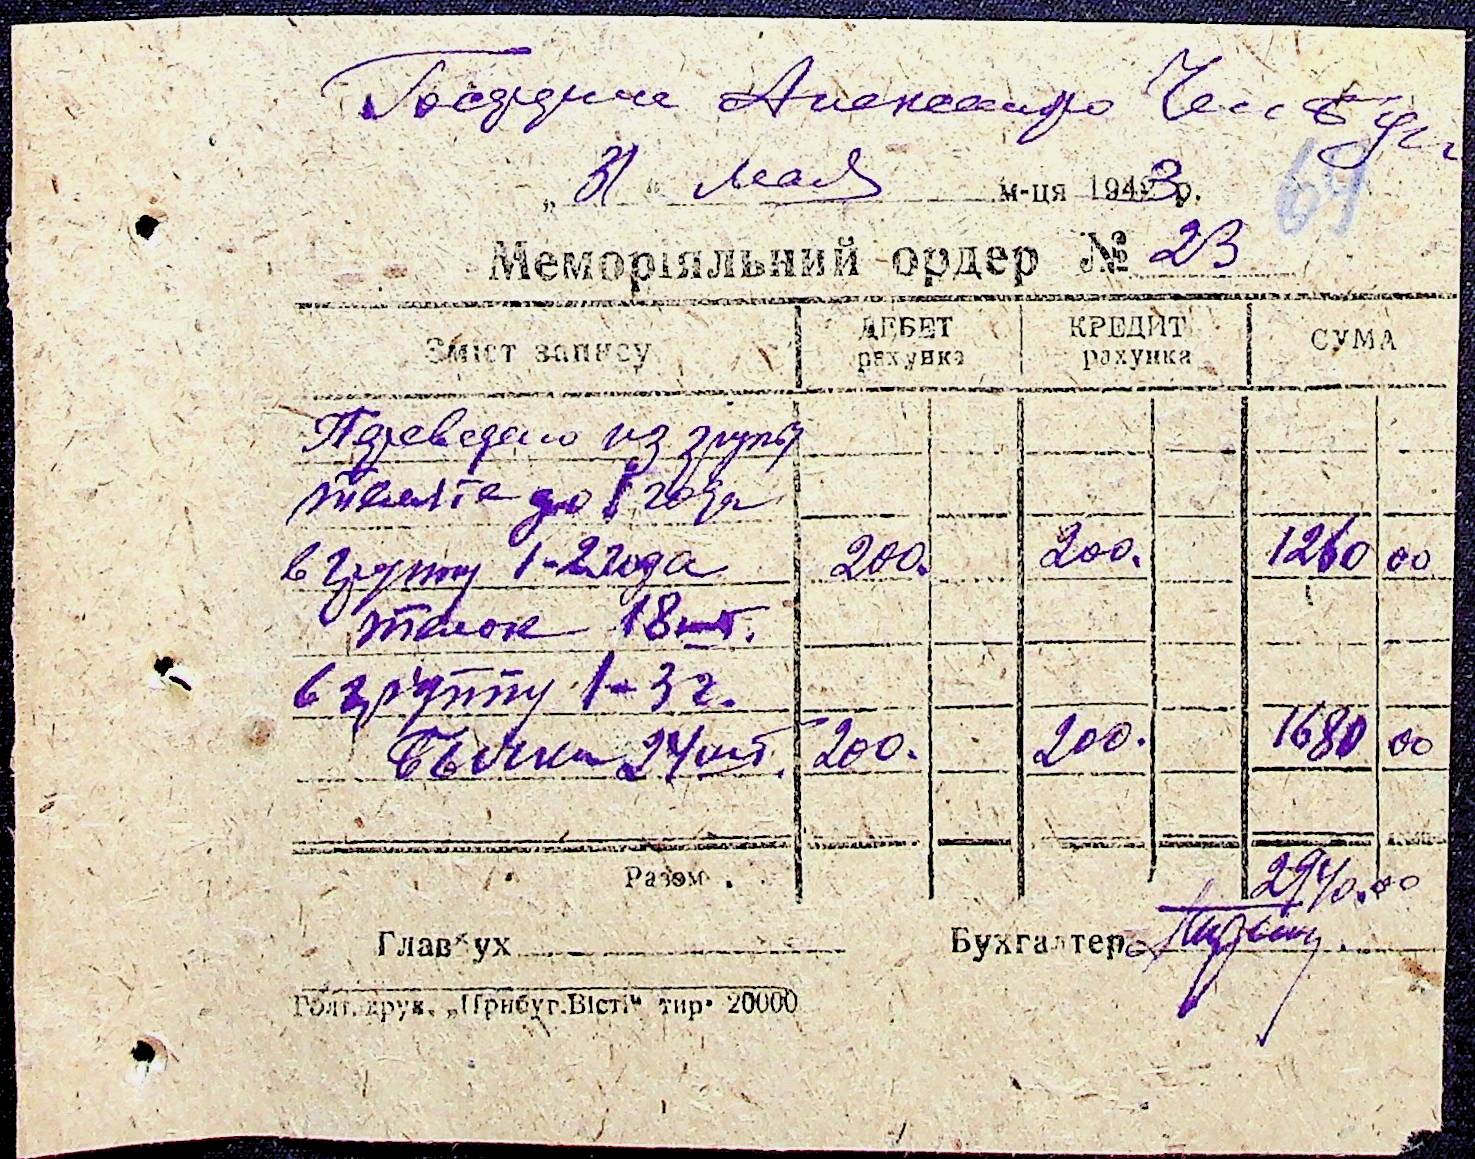 31 мая м-ця 1943 р.
64
Меморіяльний ордер № 23
Зміст запису ДЕБЕТ рахунка КРЕДИТ рахунка СУМА
Переведено из групы
телята до 1 года
в групу 1-2 года 200. 200. 1260 00
телок 18 шт.
в группу 1-3 г.
Бычки 24 шт. 200. 200. 1680 00
Разом 2940.00
Главбух Бухгалтер
Голт. друк. „Прибуг.Вісті“ тир. 20000